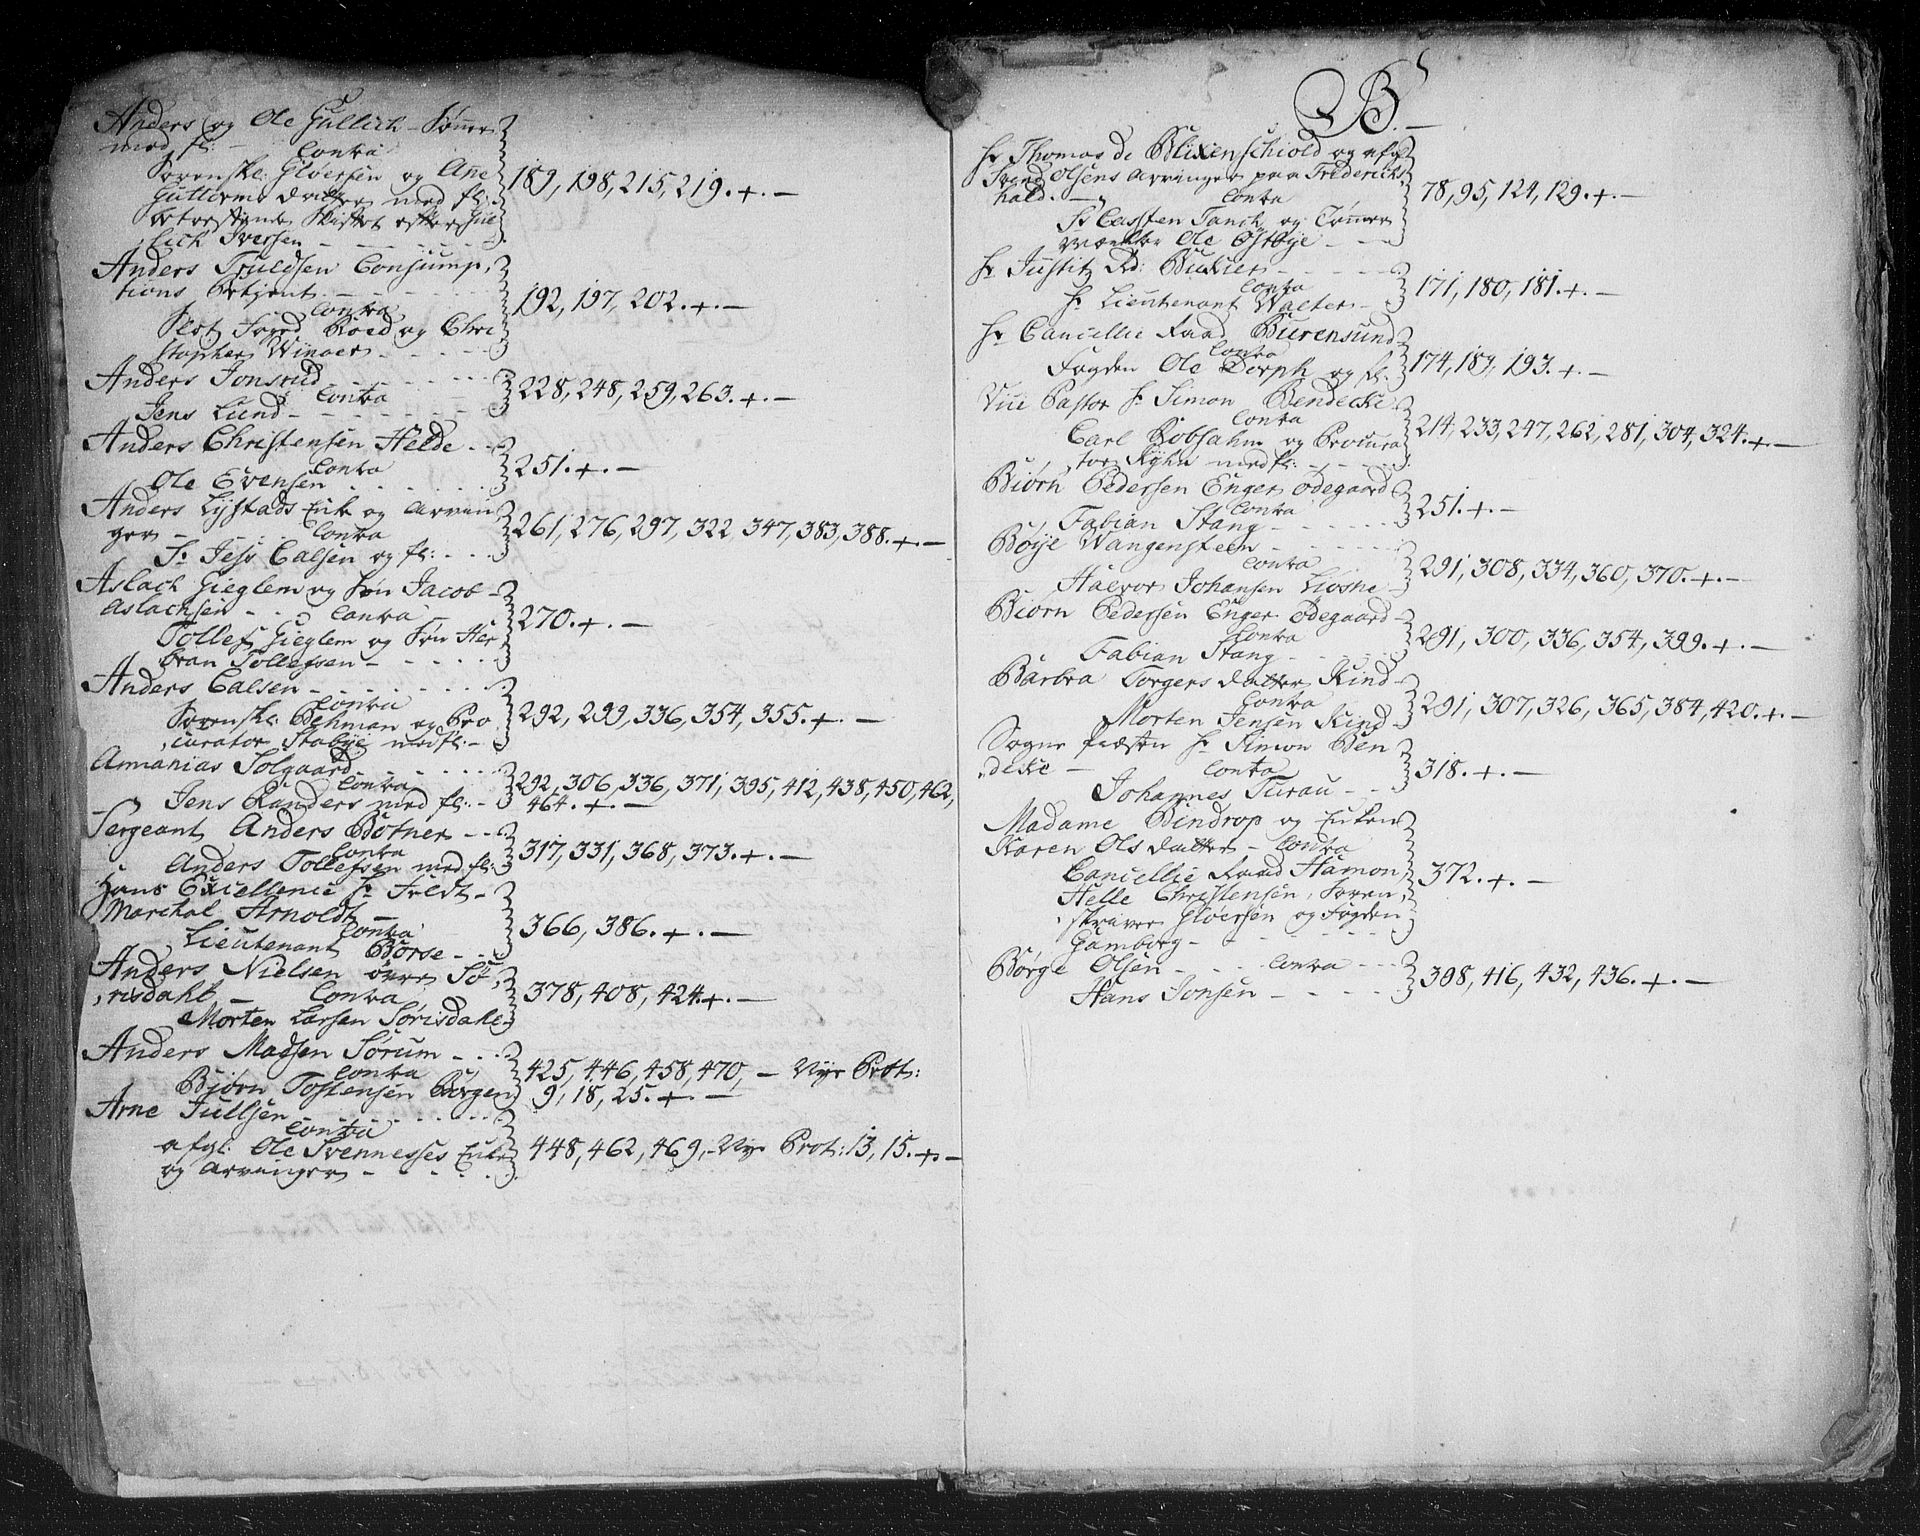 Anders og Ole Gullich Sønner
med fl: - Contra
Sorenskr: Gløersen og Ane
Gullerns datter med fl:
betreffende Skiftet efter Gul
lich Iversen
189, 198, 215, 219. +. -
Anders Truldsen Consump-
tions Betjent
Contra
Slot Foged Roed og Chri
stopher Winner
192, 197, 202. +. -
Anders Jonsrud
Contra
Jens Lund
228, 248, 259, 263. +. -
Anders Christensen Helde
Contra
Ole Evensen
251. +. -
Anders Lystads Enke og Arvin
ger - Contra
Sr. Jess Calsen og fl:
261, 276, 297, 322, 347, 383, 388. +. -
Aslach Gieglem og Søn Jacob
Aslachsen - Contra
Tollef Gieglem og Søn Her
bran Tollefsen
270. +. -
Anders Calsen
Contra
Sorenskr: Behman og Pro
curator Stabye med fl:
292, 299, 336, 354, 355. +. -
Annanias Solgaard
Contra
Jens Randers med fl:
292, 306, 336, 371, 395, 412, 438, 450, 462,
464. +. -
Sergeant Anders Botner
Contra
Anders Tollefsen med fl:
317, 331, 368, 373. +. -
Hans Excellence Hr Feldt-
Marchal Arnoldt
Contra
Lieutenant Borse
366, 386. +. -
Anders Nielsen øvre Sø-
risdahl - Contra
Morten Larsen Sørisdahl
378, 408, 424. +. -
Anders Madsen Sørum
Contra
Bjørn Tostensen Borgen
425, 446, 458, 470, - Nye Prot:
9, 18, 25. +. -
Arne Jullsen
Contra
afgl: Ole Svennesses Enke
og Arvinger
448, 462, 469, - Nye Prot: 13, 15. + -
B. -
Hr Thomas de Blixenschiold og afgl
Svend Olsens Arvinger paa Friderichs
hald. - Contra
Sr Carsten Tanch og Tømmer
Mænder Ole Østbye
78, 95, 124, 129. +. -
Hr Justitz Rd: Bukier
Contra
Hr Lieutenant Walter
171, 180, 181. +. -
Hr Cancellie Raad Burensund
Contra
Fogden Ole Dorph og fl:
174, 189, 193. +. -
Vice Pastor Hr Simon Bendecke
Contra
Carl Robsahm og Procura
tor Ryhn med fl:
214, 233, 247, 262, 281, 304, 324. +. -
Biørn Pedersen Enger ødegaard
Contra
Fabian Stang
251. +. -
Böye Wangensteen
Contra
Halvor Johansen Liosne
291, 308, 334, 360, 370. +. -
Biørn Pedersen Enger ødegaard
Contra
Fabian Stang
291, 300, 336, 354, 399. +. -
Barbra Torgers datter Rind
Contra
Morten Jensen Rind
291, 307, 326, 365, 384, 420. +. -
Sogne Præsten Hr Simon Ben
decke - Contra
Johannes Turau
318. +. -
Madame Bindrop og Enken
Karen Ols datter - Contra
Cancellie Raad Hamon
Helle Christensen, Soren-
skriver Gløersen og Fogden
Gamborg
372. +. -
Børge Olsen - Contra
Hans Jonsen
398, 416, 432, 436. +. -